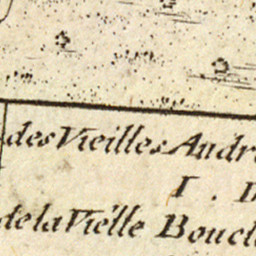 des Vieilles Andr
I .
de la Vieille Boucl